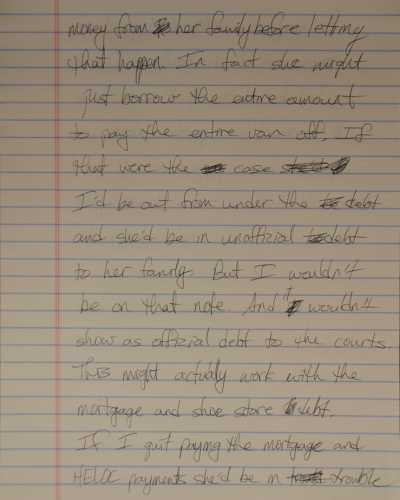 money from her family before letting
that happen. In fact she might
just borrow the entire amount
to pay the entire van off. If
that were the case
I'd be out from under the debt
and she'd be in unofficial debt
to her family. But I wouldn't
be on that note. And it wouldn't
show as official debt to the courts.
This might actually work with the
mortgage and shoe store debt.
If I quit paying the mortgage and
HELOC payments she'd be in trouble